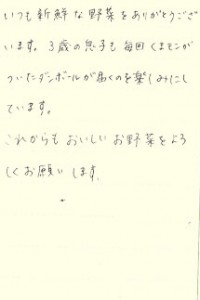 いつも新鮮な野菜をありがとうござ
います。3歳の息子も毎回くまモンが
ついたダンボールが届くのを楽しみにし
ています。
これからもおいしいお野菜をよろ
しくお願いします。